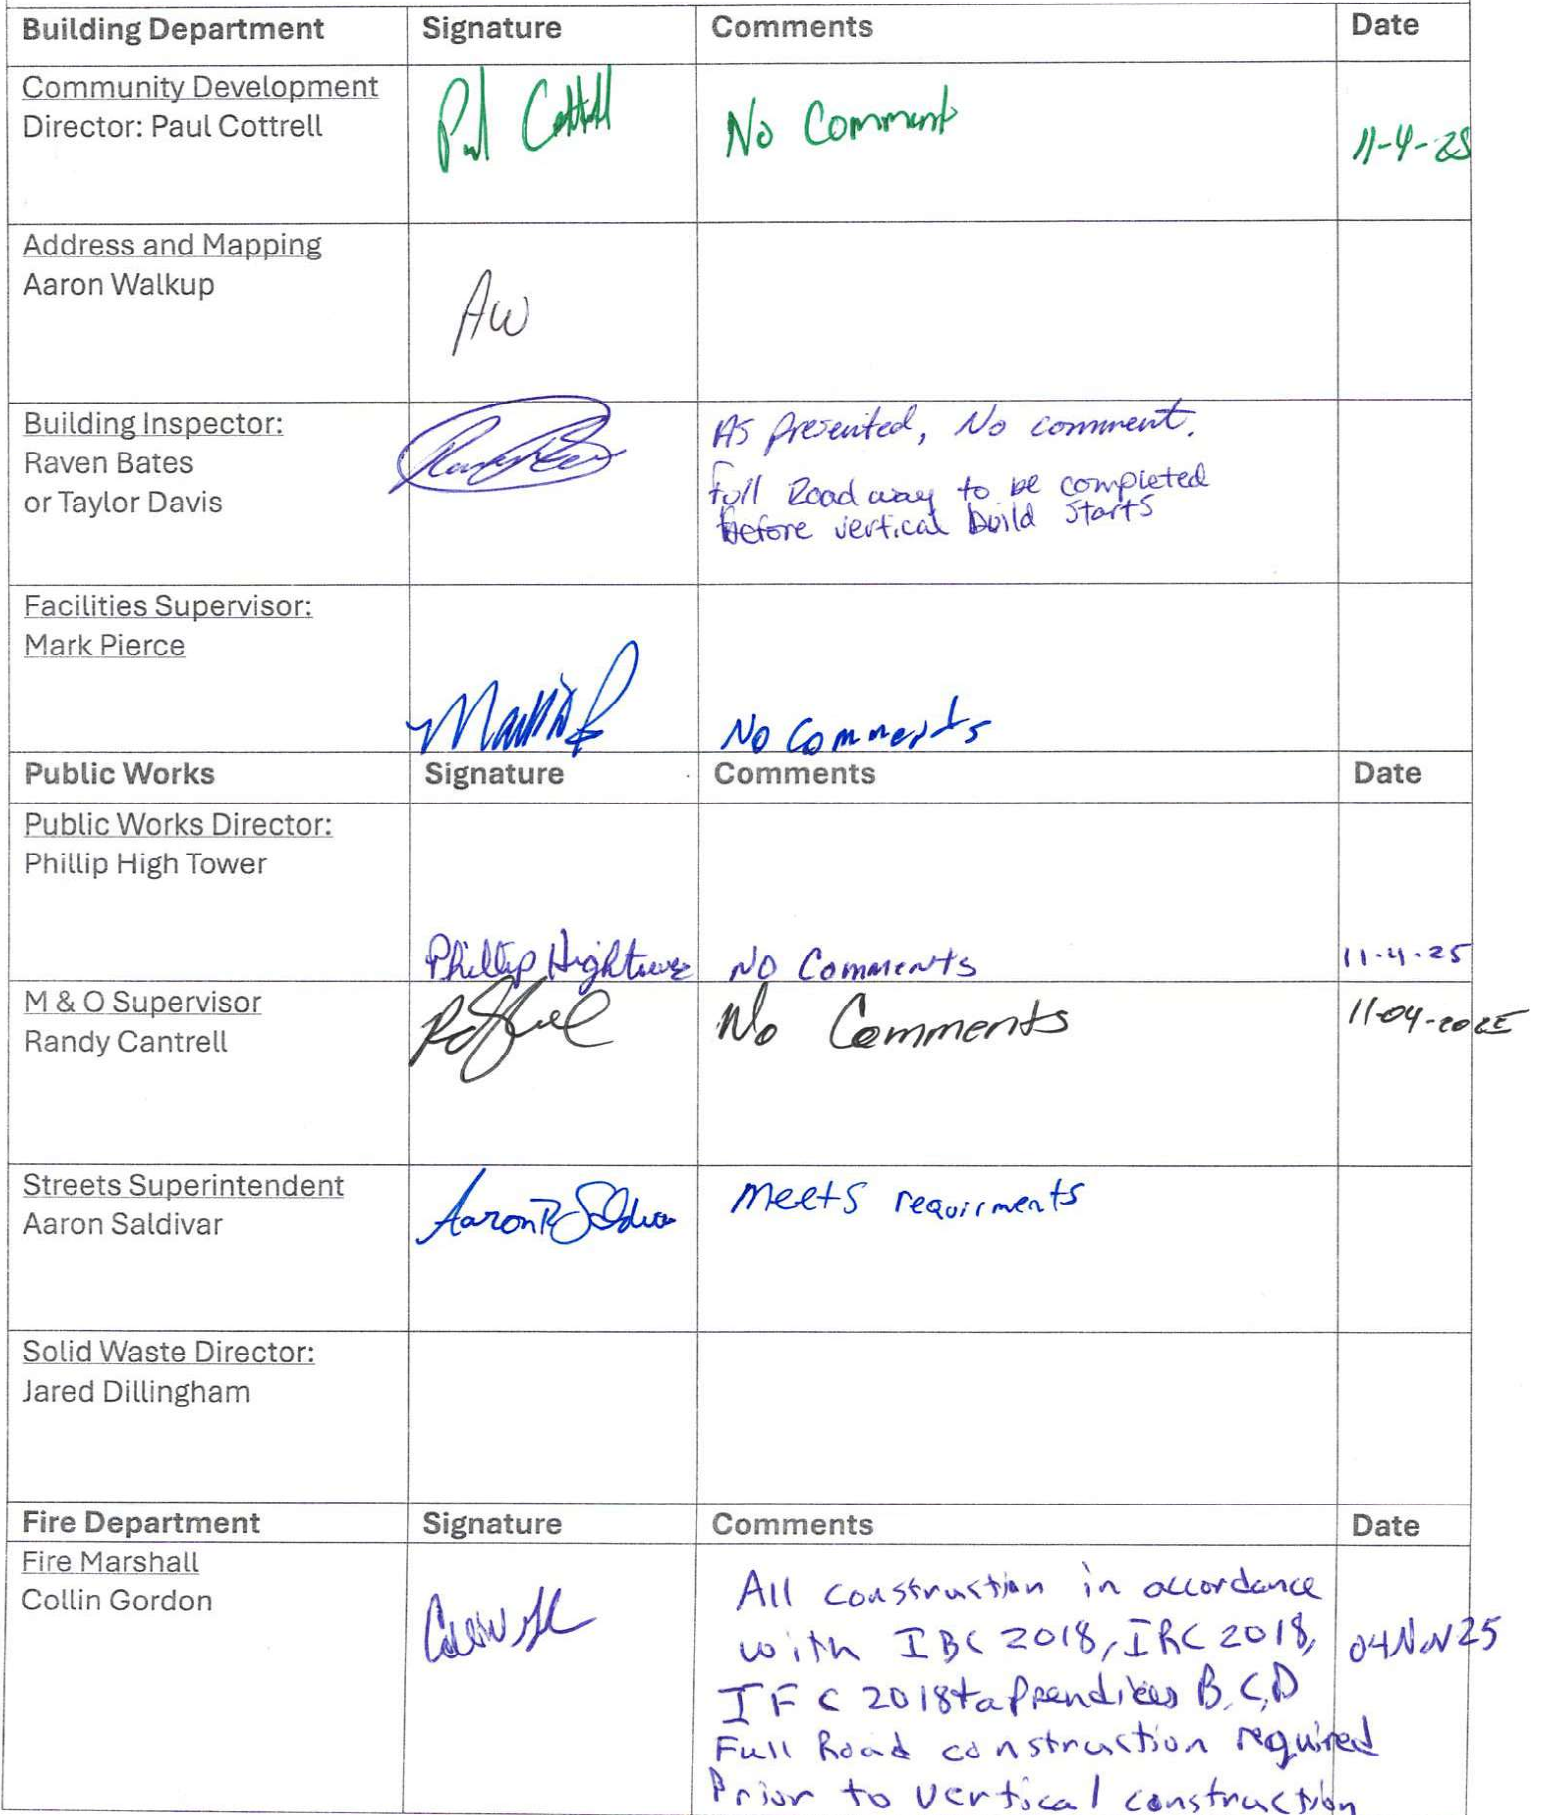 Building Department Signature Comments Date
Community Development
Director: Paul Cottrell
Paul Cottrell No Comment 11-4-25
Address and Mapping
Aaron Walkup
AW
Building Inspector:
Raven Bates
or Taylor Davis
As presented, No comment.
Full Roadway to be completed
before vertical build starts
Facilities Supervisor:
Mark Pierce
No Comments
Public Works Signature Comments Date
Public Works Director:
Phillip High Tower
Phillip Hightower No Comments 11-4-25
M & O Supervisor
Randy Cantrell
No Comments 11-04-2025
Streets Superintendent
Aaron Saldivar
Aaron R Saldivar Meets requirments
Solid Waste Director:
Jared Dillingham
Fire Department Signature Comments Date
Fire Marshall
Collin Gordon
All construction in accordance
with IBC 2018, IRC 2018, 04Nov25
IFC 2018 + appendices B, C, D
Full Road construction required
Prior to vertical construction